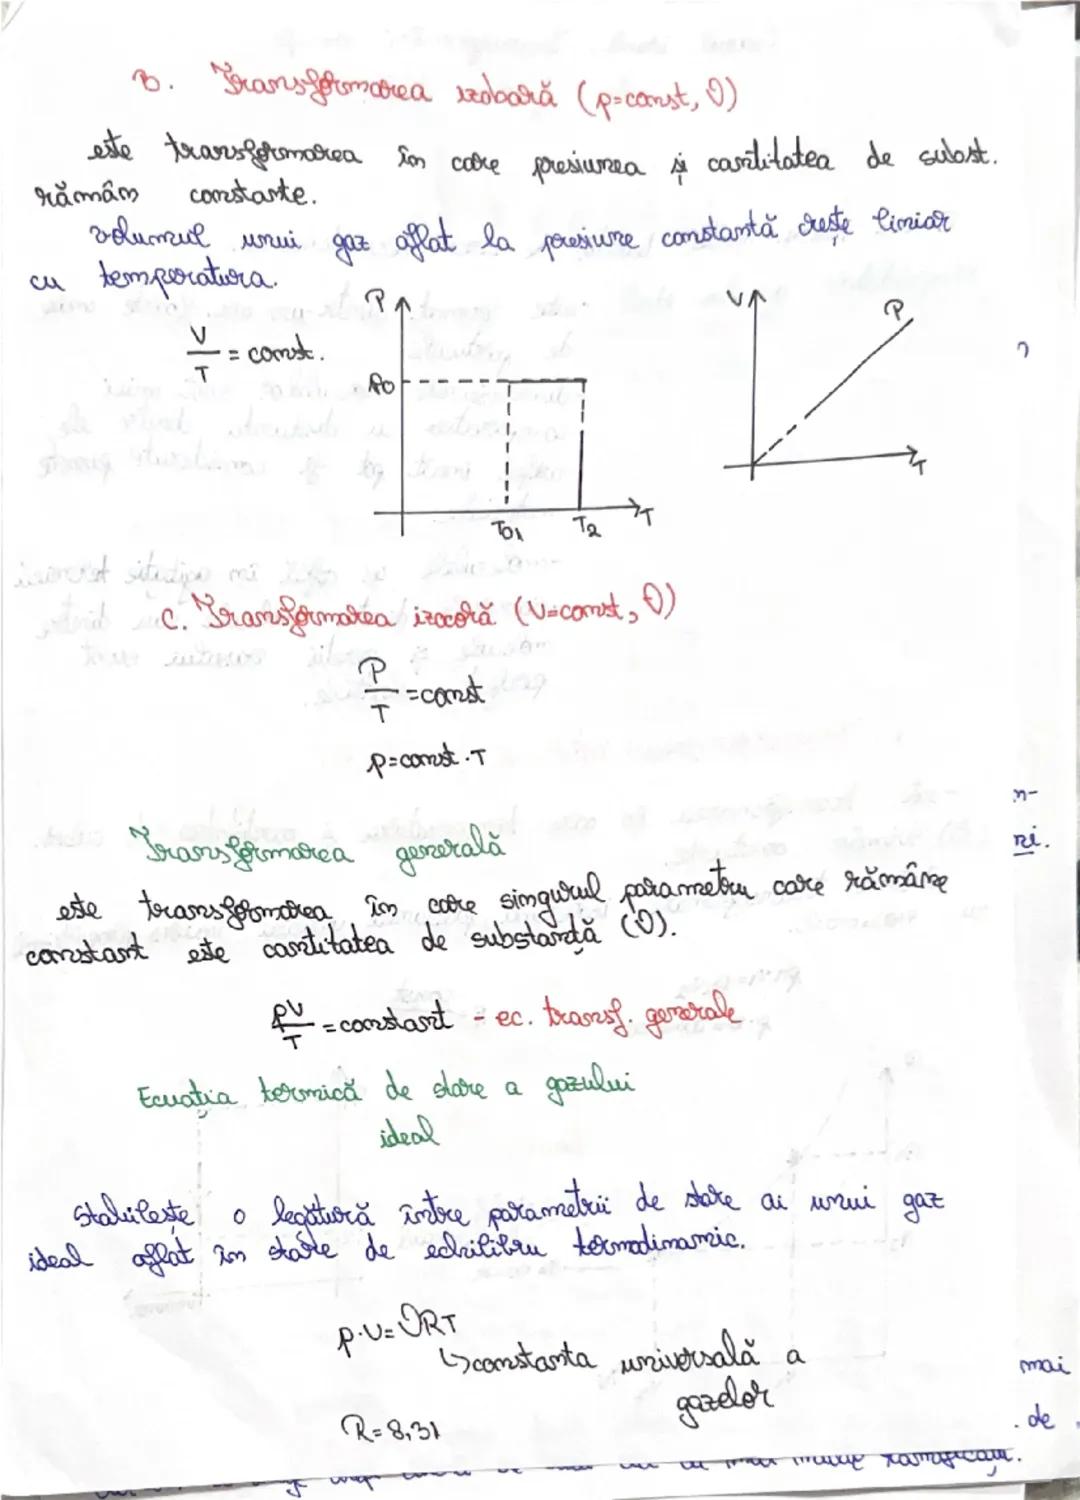 B. Transformarea izobară (p=const, ϑ)
este transformarea în care presiunea și cantitatea de subst.
rămân constante.
Volumul unui gaz aflat la presiune constantă crește liniar
cu temperatura.
V/T = const.
P
P0
T01 T2 T
V
P
T
C. Transformarea izocoră (V=const, ϑ)
P/T = const
p=const·T
Transformarea generală
este transformarea în care singurul parametru care rămâne
constant este cantitatea de substanță (ϑ).
pV/T = constant - ec. transf. generale
Ecuația termică de stare a gazului
ideal
Stabilește o legătură între parametrii de stare ai unui gaz
ideal aflat în stare de echilibru termodinamic.
p·V=ϑRT
↳constanta universală a
gazelor
R=8,31
n-
ri.
mai
de